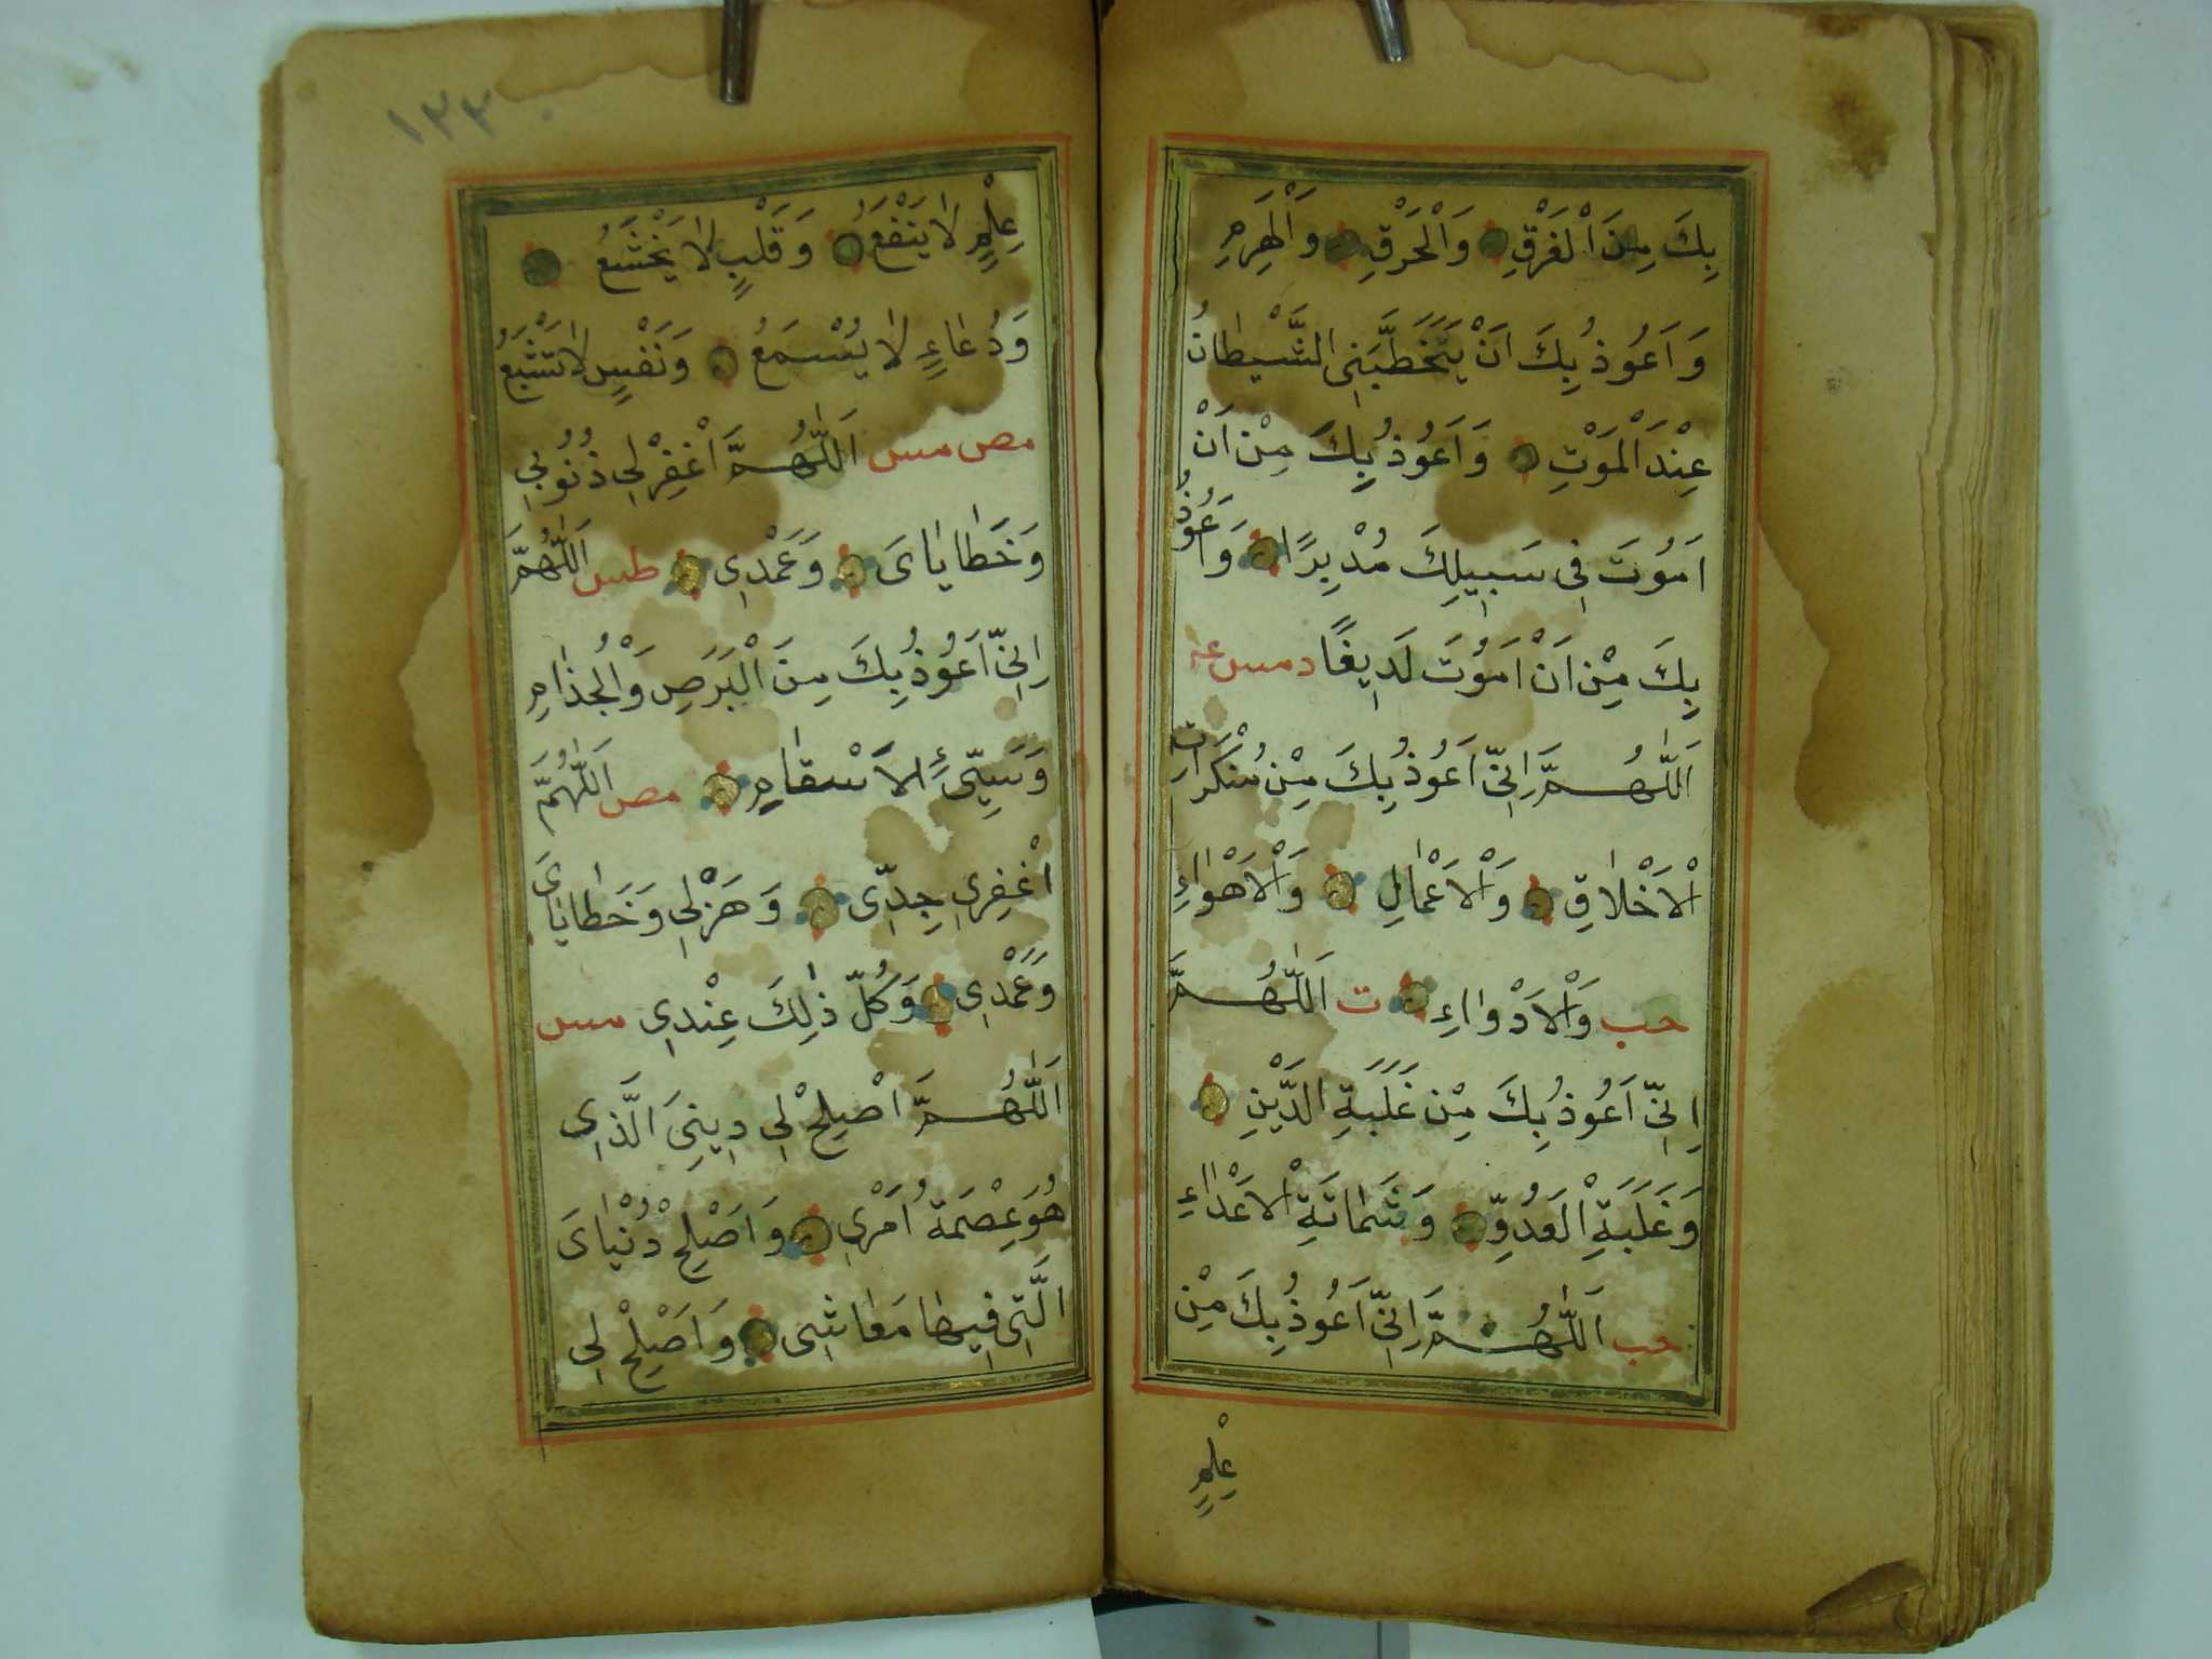 بِكَ مِنَ الْغَرْقِ وَالْحَرْقِ وَالْهَرَمِ
وَاَعُوذُ بِكَ اَنْ يَتَخَطَّبَنِى الشَّيْطَانُ
عِنْدَ الْمَوْتِ وَاَعُوذُ بِكَ مِنْ اَنْ
اَمُوتَ فِى سَبِيلِكَ مُدْبِرًا وَاَعُوذُ
بِكَ مِنْ اَنْ اَمُوتَ لَدِيغًا د مس
اَللّٰهُمَّ اِنِّى اَعُوذُ بِكَ مِنْ مُنْكَرَاتِ
الْاَخْلَاقِ وَالْاَعْمَالِ وَالْاَهْوَاءِ
حب وَالْاَدْوَاءِ ت اَللّٰهُمَّ
اِنِّى اَعُوذُ بِكَ مِنْ غَلَبَةِ الدَّيْنِ
وَغَلَبَةِ الْعَدُوِّ وَشَمَاتَةِ الْاَعْدَاءِ
حب اَللّٰهُمَّ اِنِّى اَعُوذُ بِكَ مِنْ
عِلْمٍ
١٢٣
عِلْمٍ لَا يَنْفَعُ وَقَلْبٍ لَا يَخْشَعُ
وَدُعَاءٍ لَا يُسْمَعُ وَنَفْسٍ لَا تَشْبَعُ
مص مس اَللّٰهُمَّ اغْفِرْ لِى ذُنُوبِى
وَخَطَايَاىَ وَعَمْدِى طس اَللّٰهُمَّ
اِنِّى اَعُوذُ بِكَ مِنَ الْبَرَصِ وَالْجُذَامِ
وَسَيِّئِ الْاَسْقَامِ مص اَللّٰهُمَّ
اغْفِرلِى جِدِّى وَهَزْلِى وَخَطَايَاىَ
وَعَمْدِى وَكُلُّ ذٰلِكَ عِنْدِى مس
اَللّٰهُمَّ اَصْلِحْ لِى دِينِىَ الَّذِى
هُوَ عِصْمَةُ اَمْرِى وَاَصْلِحْ دُنْيَاىَ
الَّتِى فِيهَا مَعَاشِى وَاَصْلِحْ لِى